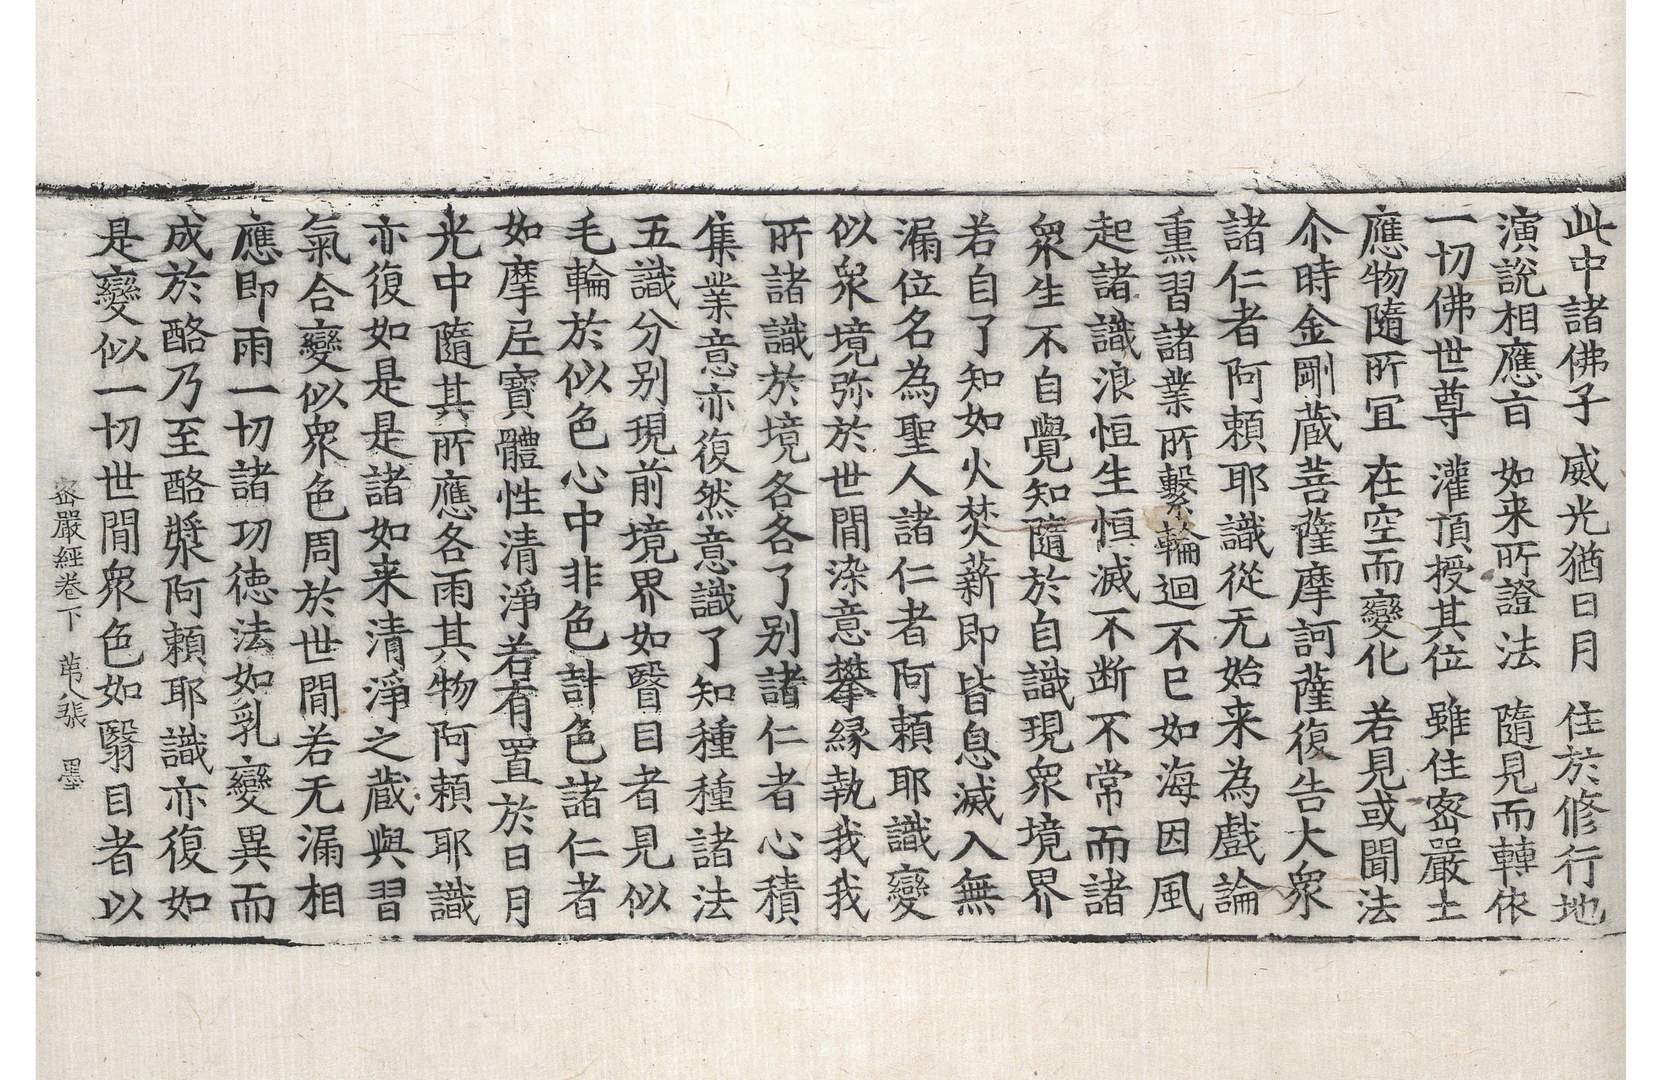 此中諸佛子 威光猶日月 住於修行地
演說相應言 如来所證法 隨見而轉依
一切佛世尊 灌頂授其位 雖住密嚴土
應物隨所冝 在空而變化 若見或聞法
尒時金剛蔵菩薩摩訶薩復告大衆
諸仁者阿頼耶識從无始来為戲論
熏習諸業所繫輪迴不已如海因風
起諸識浪恒生恒滅不断不常而諸
衆生不自覺知隨於自識現衆境界
若自了知如火焚薪即皆息滅入無
漏位名為聖人諸仁者阿頼耶識變
似衆境弥於世間染意攀縁執我我
所諸識於境各各了别諸仁者心積
集業意亦復然意識了知種種諸法
五識分别現前境界如瞖目者見似
毛輪於似色心中非色計色諸仁者
如摩尼寶體性清淨若有置於日月
光中隨其所應各雨其物阿頼耶識
亦復如是是諸如来清淨之蔵與習
氣合變似衆色周於世間若无漏相
應即雨一切諸功徳法如乳變異而
成於酪乃至酪漿阿頼耶識亦復如
是變似一切世間衆色如翳目者以
密嚴經卷下 苐八張 墨